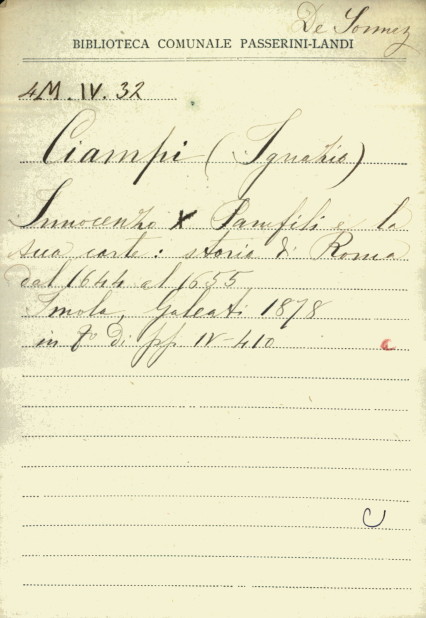 De Sornez
BIBLIOTECA COMUNALE PASSERINI-LANDI
4M. IV. 32
Ciampi (Ignazio)
Innocenzo X Panfili e la
sua corte: storia di Roma
dal 1644 al 1655
Imola, Galeati 1878
in 8º di pp IV-410
c
C